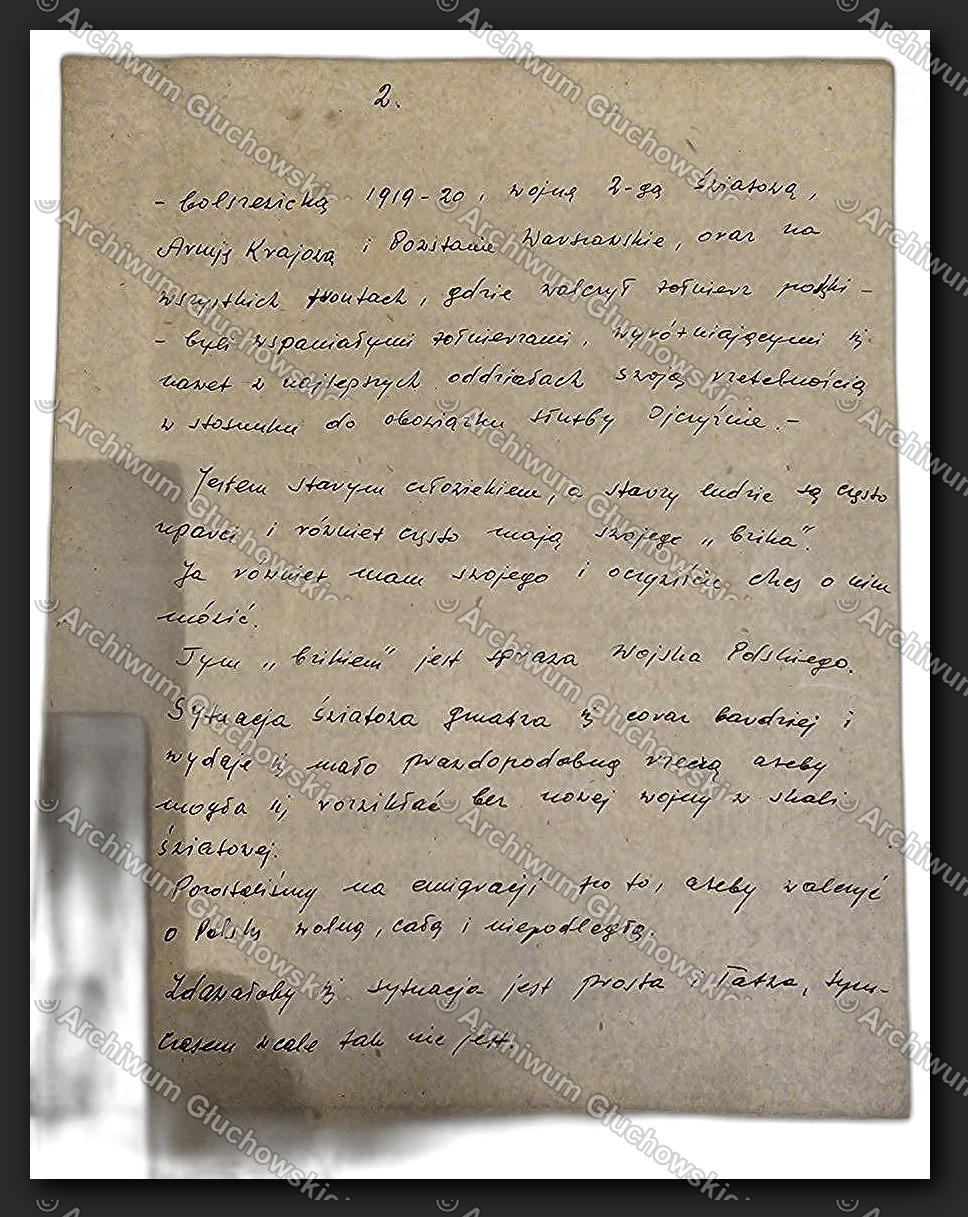 2.
- bolszewicką 1919-20, wojnę 2-gą światową,
Armję Krajową i Powstanie Warszawskie, oraz na
wszystkich frontach, gdzie walczył żołnierz polski -
- byli wspaniałymi żołnierzami, wyróżniającymi się
nawet w najlepszych oddziałach swoją rzetelnością
w stosunku do obowiązku służby Ojczyźnie.-
Jestem starym człowiekiem, a starzy ludzie są często
uparci i również często mają swojego „bzika”.
Ja również mam swojego i oczywiście chcę o nim
mówić.
Tym „bzikiem” jest sprawa Wojska Polskiego.
Sytuacja światowa gmatwa się coraz bardziej i
wydaje się mało prawdopodobną rzeczą ażeby
mogła się rozwikłać bez nowej wojny w skali
światowej.
Pozostaliśmy na emigracji po to, ażeby walczyć
o Polskę wolną, całą i niepodległą.
Zdawałoby się sytuacja jest prosta i łatwa, tym-
czasem wcale tak nie jest.
© Archiwum Głuchowskich